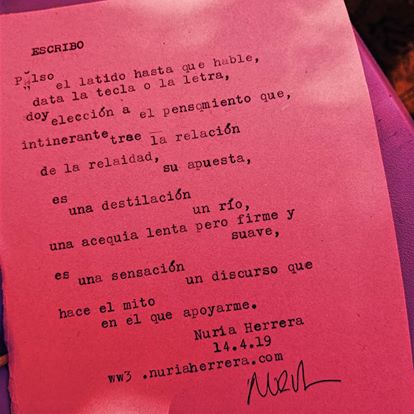 ESCRIBO
Pulso el latido hasta que hable,
data la tecla o la letra,
doy elección a el pensqmiento que,
intinerante trae la relación
de la relaidad, su apuesta,
es una destilación un río,
una acequia lenta pero firme y suave,
es una sensación un discurso que
hace el mito en el que apoyarme.
Nuria Herrera
14.4.19
ww3 .nuriaherrera.com